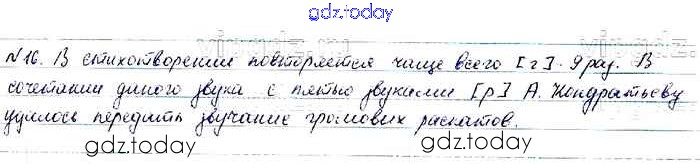 gdz.today
№16. В стихотворении повторяется чаще всего [г]. 9 раз. В
сочетании данного звука с пятью звуками [р] А. Кондратьеву
удалось передать звучание громовых раскатов.
gdz.today
gdz.today